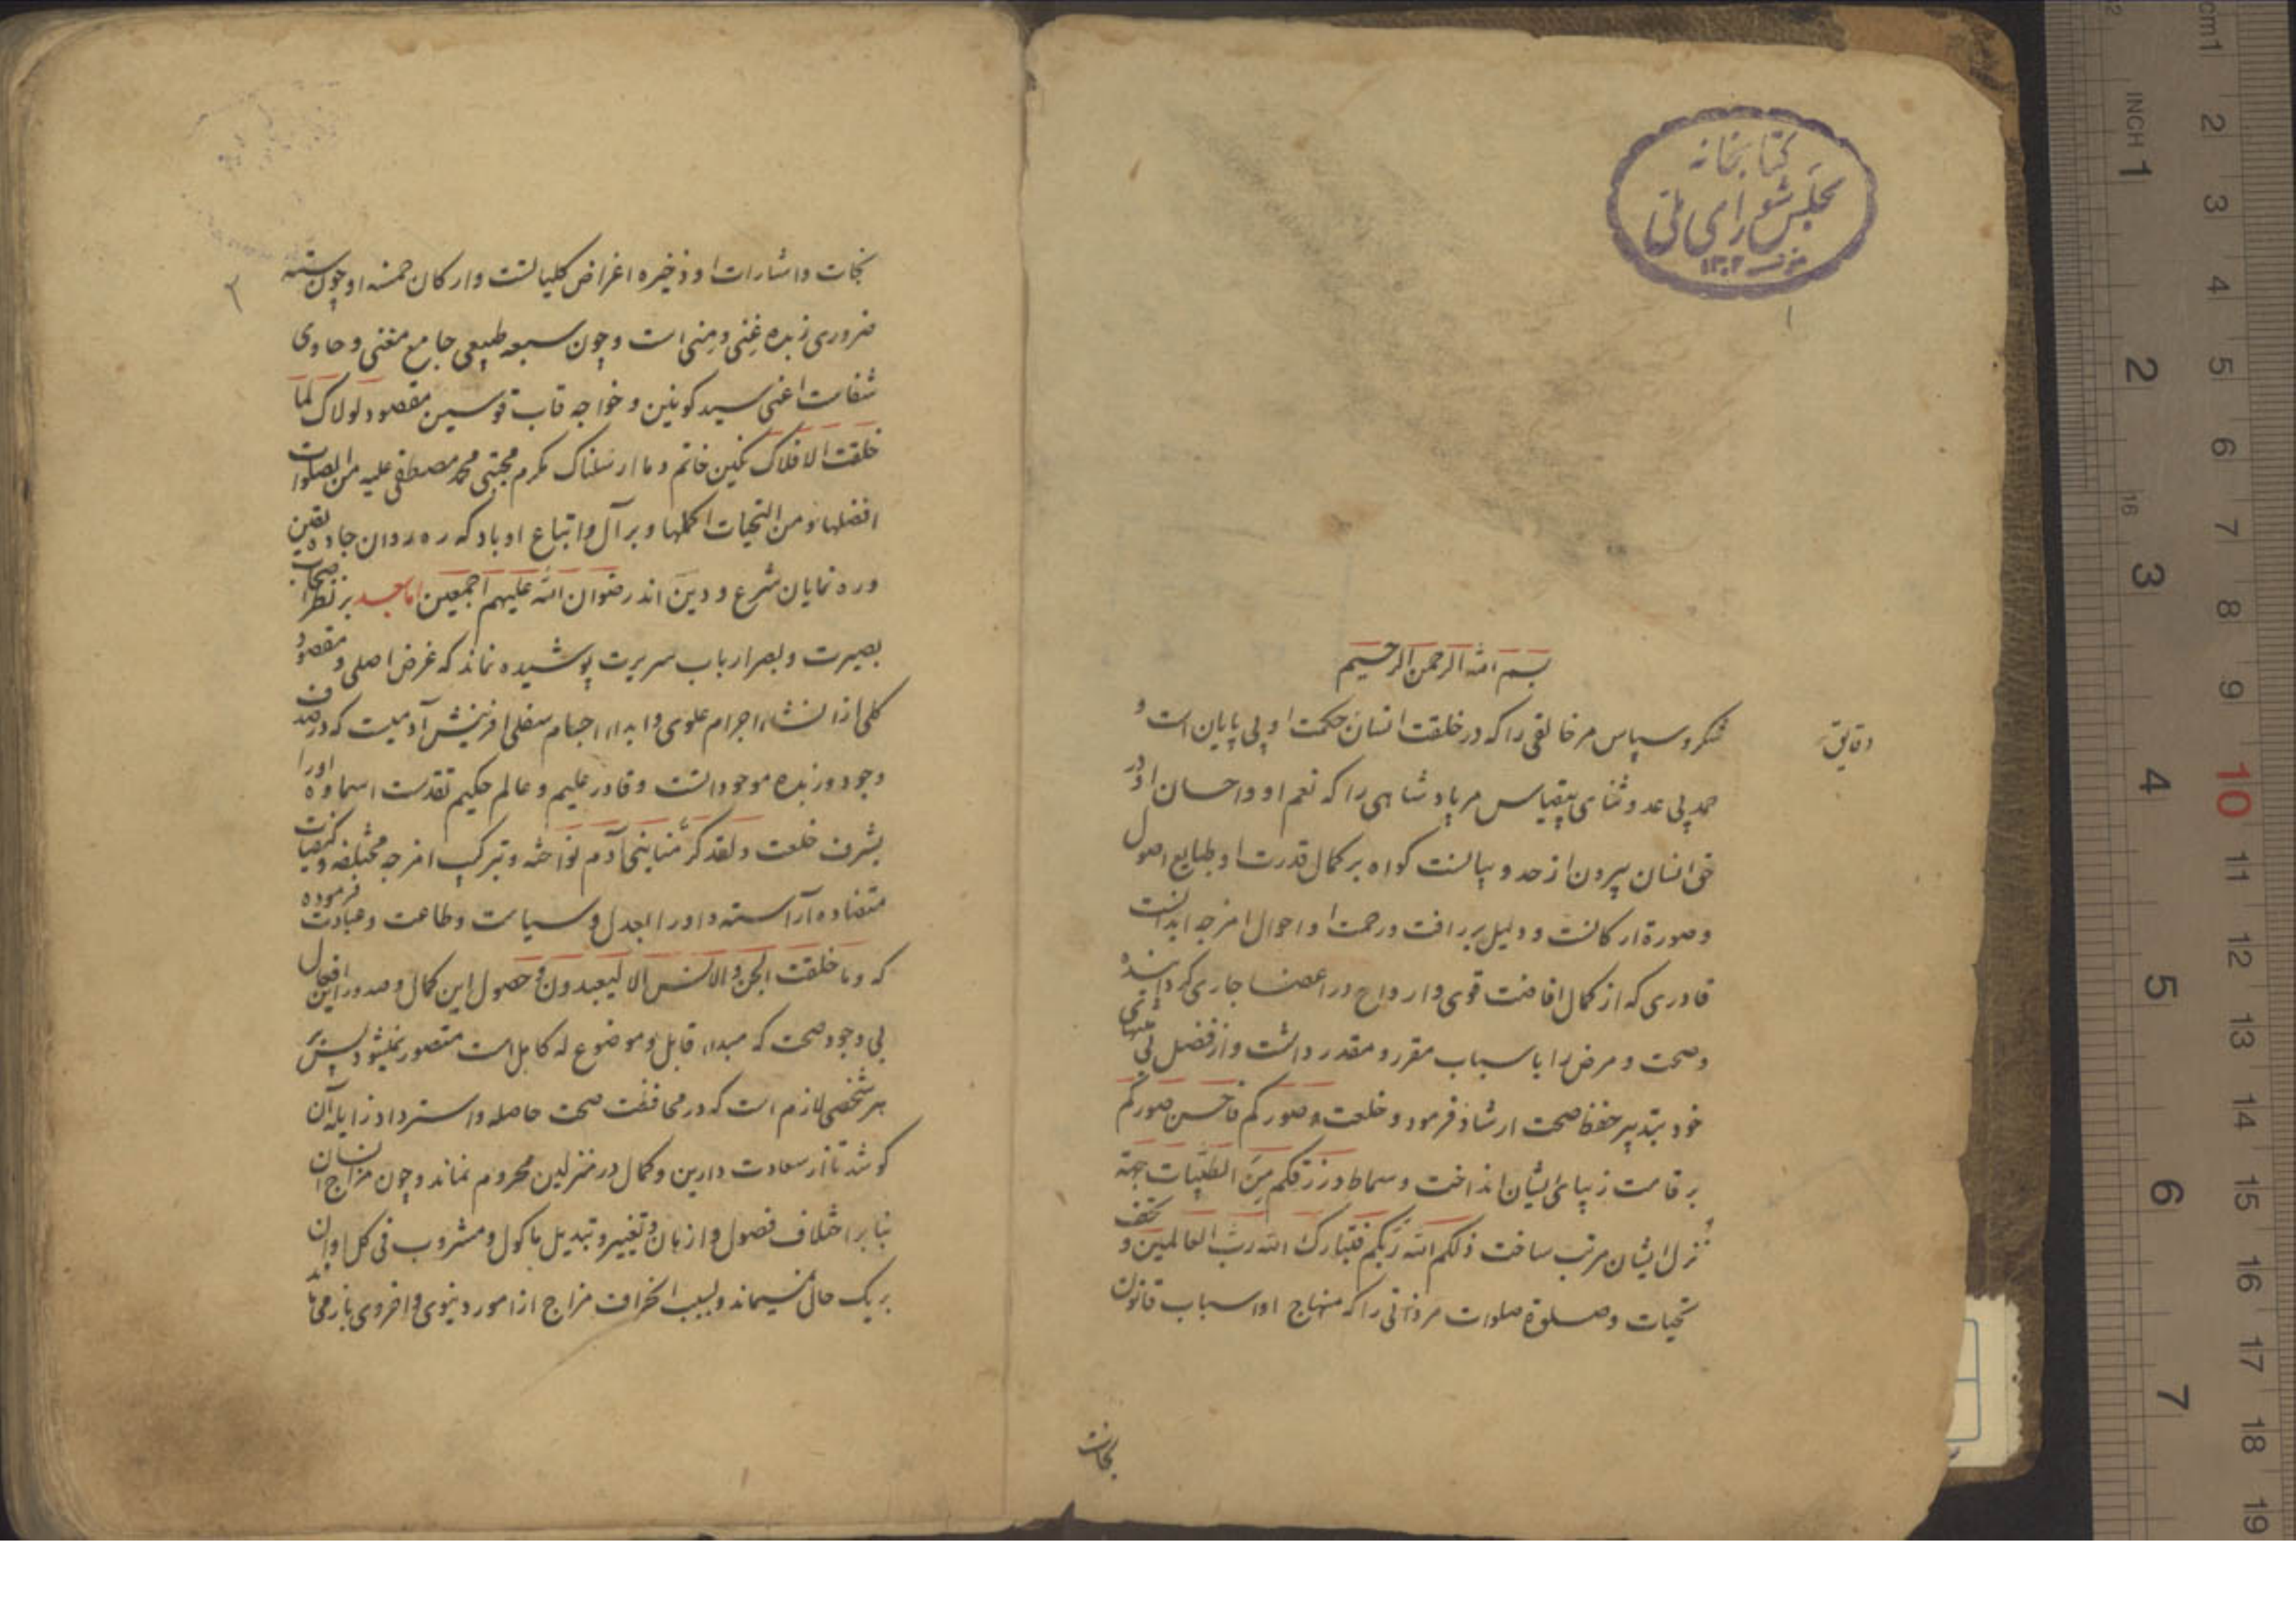 کتابخانه
مجلس شورای ملی
۱۳۰۲
۱
بسم الله الرحمن الرحیم
شکر و سپاس مر خالقی را که در خلقت انسان حکمت او بی پایان است و
دقایق
حمد بی عد و ثنای بیقیاس مر پادشاهی را که نعم او و احسان او در
حق انسان بیرون از حد و بیانست کواه بر کمال قدرت او طبایع اصول
و صورة ارکانست و دلیل بر رافت و رحمت او احوال امزجه ابدانست
قادری که از کمال افاضت قوی و ارواح در اعضا جاری کرداننده
و صحت و مرض را باسباب مقرر و مقدر داشت و از فضل بی منتهای
خود بتدبیر حفظ صحت ارشاد فرمود و خلعت و صورکم فاحسن صورکم
بر قامت زیبای ایشان انداخت و سماط و رزقکم من الطیبات جهة
نزل ایشان مرتب ساخت ذلکم الله ربکم فتبارک الله رب العالمین و تحف
تحیات و صلوة صلوات مر ذاتی را که منهاج او اسباب قانون
نجات
۲
نجات و اشارات او ذخیره اغراض کلیاتست و ارکان خمسه او چون سته
ضروری زبده غنی و منی است و چون سبعه طبیعی جامع مغنی و حاوی
شفاست اعنی سید کونین و خواجه قاب قوسین مقصود لولاک لما
خلقت الافلاک نکین خاتم و ما ارسلناک مکرم مجتبی محمد مصطفی علیه من الصلوات
افضلها و من التحیات اکملها و بر آل و اتباع او باد که ره روان جاده یقین
و ره نمایان شرع و دین اند رضوان الله علیهم اجمعین اما بعد بر نظر اصحاب
بصیرت و بصر ارباب سریرت پوشیده نماند که غرض اصلی و مقصود
کلی از انشاء اجرام علوی و ابداء اجسام سفلی افرینش آدمیت که در صدف
وجود در زبده موجوداتست و قادر علیم و عالم حکیم تقدست اسماؤه او را
بشرف خلعت و لقد کرمنا بنی آدم نواخته و بترکیب امزجه مختلفه و کیفیات
متضاده آراسته و او را بعدل و سیاست و طاعت و عبادت فرموده
که و ما خلقت الجن و الانس الا لیعبدون و حصول این کمال و صدور این افعال
بی وجود صحت که مبداء قابل و موضوع له کامل است متصور نمیشود پس بر
هر شخصی لازم است که در محافظت صحت حاصله و استرداد زایله آن
کوشد تا از سعادت دارین و کمال در منزلین محروم نماند و چون مزاج انسان
بنا بر اختلاف فصول و ازمان و تغییر و تبدیل ماکول و مشروب فی کل اوان
بر یک حال نمیماند و بسبب انحراف مزاج از امور دنیوی و اخروی باز می ماند